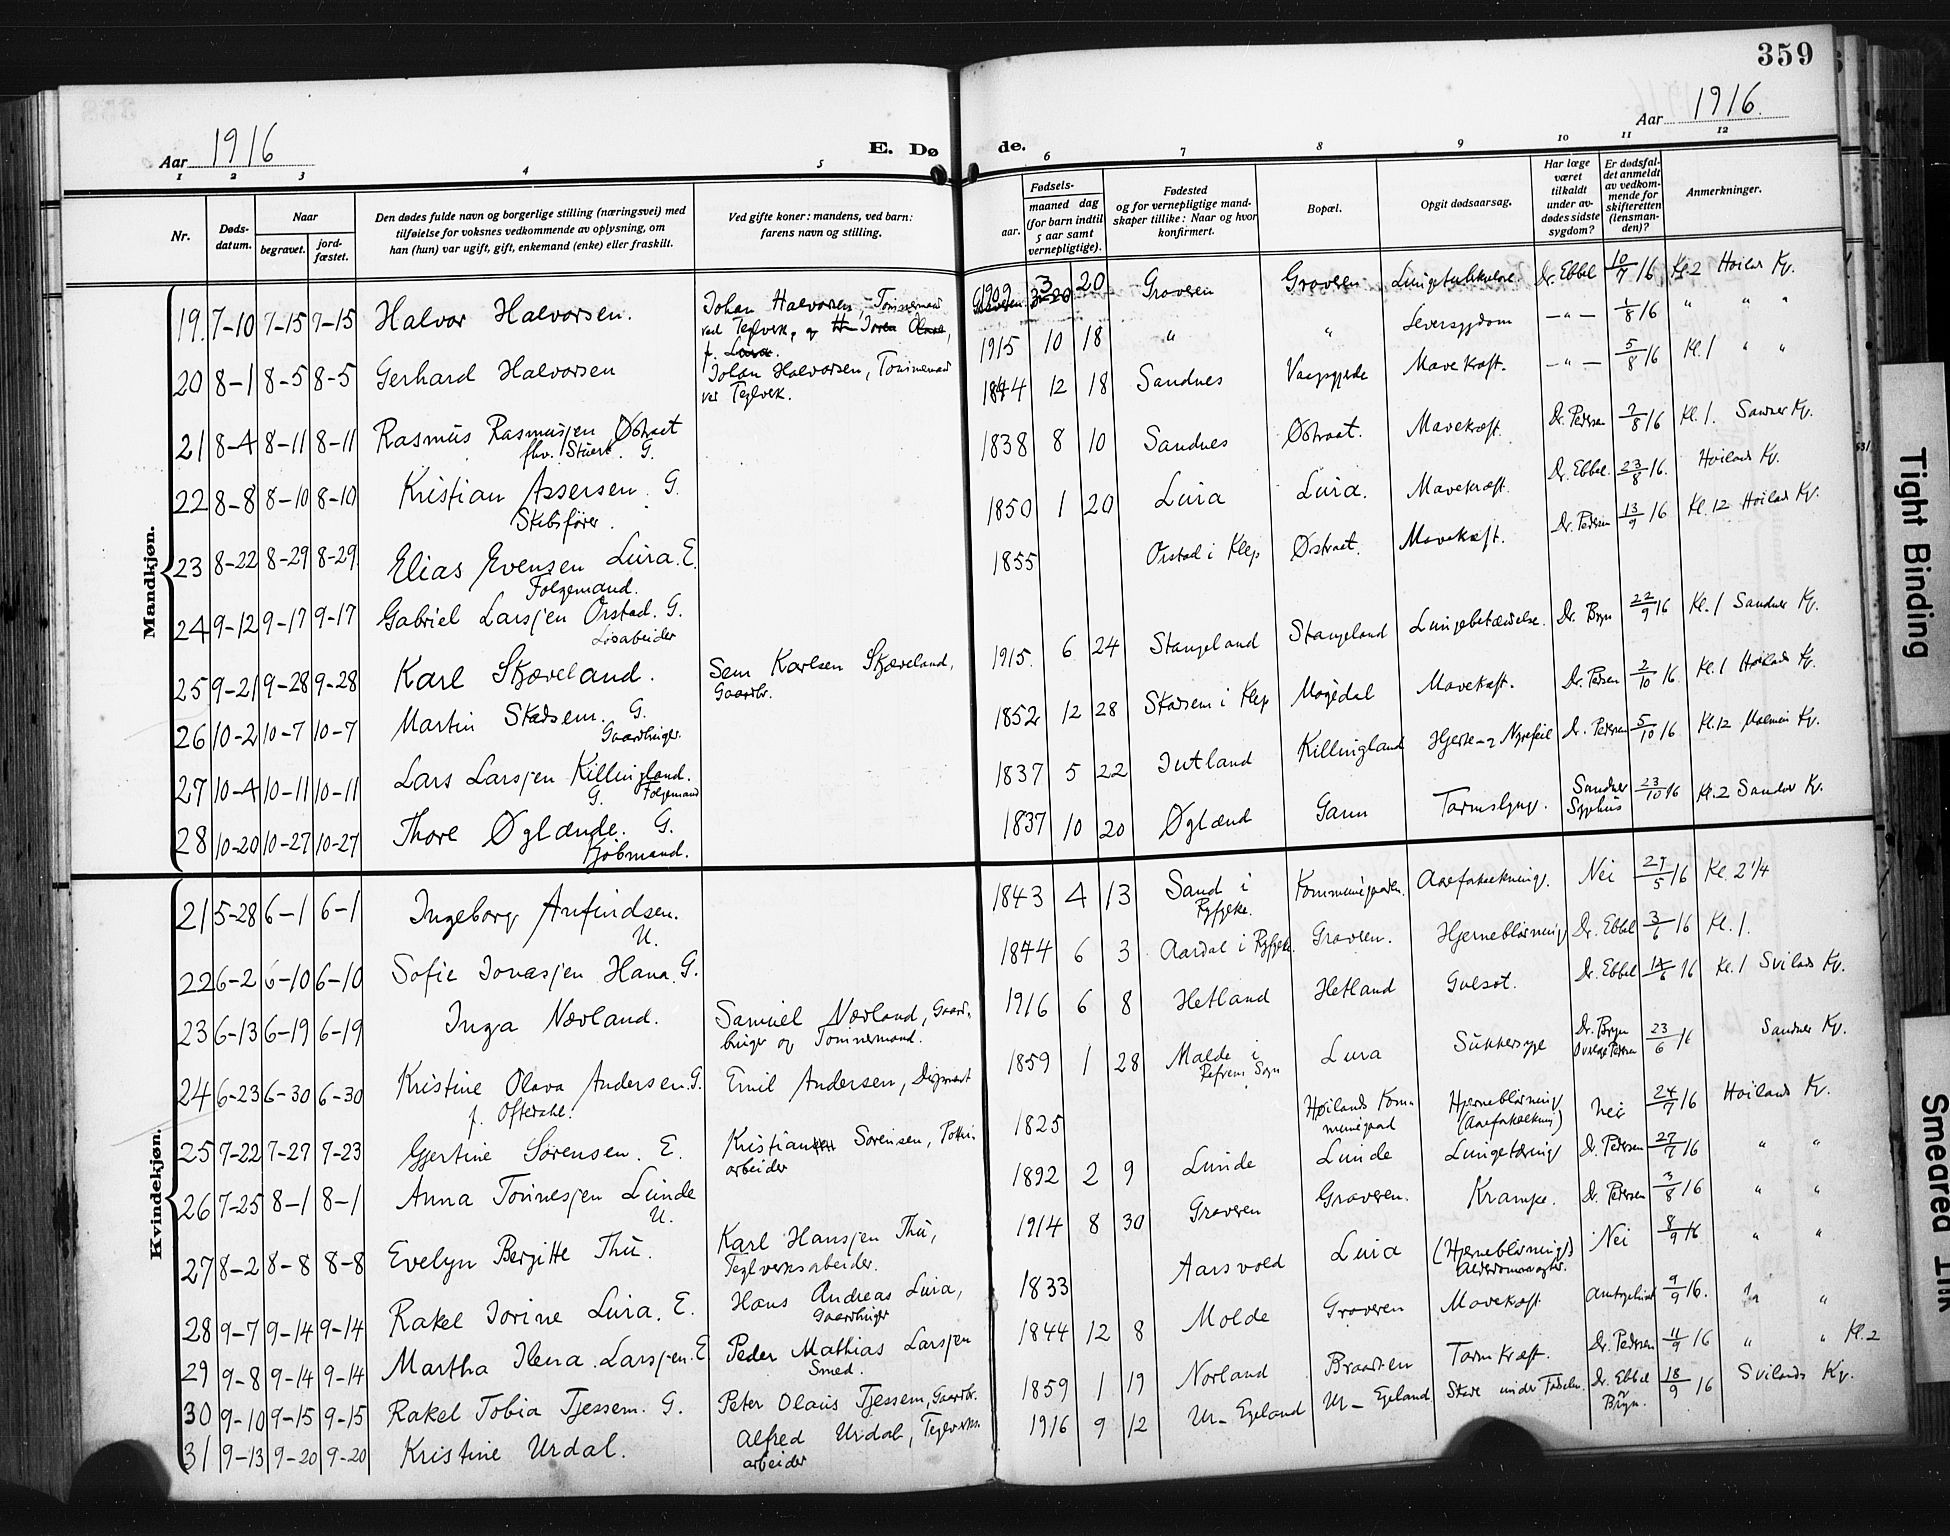 359
Aar 1916
E. Dø
de.
Aar 1916.
1 2 3 4 5 6 7 8 9 10 11 12
Nr.
Døds-
datum.
Naar
begravet.
jord-
fæstet.
Den dødes fulde navn og borgerlige stilling (næringsvei) med
tilføielse for voksnes vedkommende av oplysning, om
han (hun) var ugift, gift, enkemand (enke) eller fraskilt.
Ved gifte koner: mandens, ved barn:
farens navn og stilling.
Fødsels-
aar.
maaned dag
(for barn indtil
5 aar samt
vernepligtige).
Fødested
og for vernepligtige mand-
skaper tillike: Naar og hvor
konfirmert.
Bopæl.
Opgit dødsaarsag.
Har læge
været
tilkaldt
under av-
dødes sidste
sygdom?
Er dødsfal-
det anmeldt
av vedkom-
mende for
skifteretten
(lensman-
den)?
Anmerkninger.
Mandkjøn.
19. 7-10 7-15 7-15 Halvor Halvorsen. Johan Halvorsen, Tominemand
ved Teglverk, og
1909 3 20 Graveren Graveren Lungetuberkulose Dr. Ebbel 10/7 16 Kl. 2 Hoiland Kg.
20 8-1 8-5 8-5 Gerhard Halvorsen Johan Halvorsen, Tominemand
ved Teglverk.
1915 10 18 " " Leversygdom -"- 1/8 16 " " "
21 8-4 8-11 8-11 Rasmus Rasmussen Østraat
fhv. Stuert. G.
1844 12 18 Sandnes Vaagsgjerde Mavekræft. -"- 5/8 16 Kl. 1 " "
22 8-8 8-10 8-10 Kristian Assersen. G.
Skibsfører.
1838 8 10 Sandnes Østraat. Mavekræft. Dr. Pedersen 7/8 16 Kl. 1. Sandnes Kg.
23 8-22 8-29 8-29 Elias Evensen Lura. E.
Folgemand.
1850 1 20 Lura Lura. Mavekræft. Dr. Ebbel. 23/8 16. Hoiland Kg.
24 9-12 9-17 9-17 Gabriel Larsjen Orstad. G.
Løsarbeider
1855 Orstad i Klep Østraat. Mavekræft. Dr. Pedersen 13/9 16 Kl. 12 Hoiland Kg.
25 9-21 9-28 9-28 Karl Skjæveland. Sem Karlsen Skjæveland,
Gaardbr.
1915. 6 24 Stangeland Stangeland Lungebetændelse. Dr. Bryn 22/9 16 Kl. 1 Sandnes Kg.
26 10-2 10-7 10-7 Martin Stadsem. G.
Gaardbruger.
1852 12 28 Stadsem i Klep Møgedal Mavekræft. Dr. Pedersen 2/10 16 Kl. 1 Hoiland Kg.
27 10-4 10-11 10-11 Lars Larsjen Killingland.
G. Folgemand
1837 5 22 Jutland Killingland Hjerte- og Nyrefeil Dr. Pedersen 5/10 16 Kl. 12 Malmein Kg.
28 10-20 10-27 10-27 Thore Øglænde. G.
Kjøbmand.
1837 10 20 Øglænd Gann Tarmslyng. Sandnes
Sygehus 23/10 16 Kl. 2 Sandnes Kg.
Kvindekjøn.
21 5-28 6-1 6-1 Ingeborg Anfindsen.
U.
1843 4 13 Sand i
Ryfylke. Kommunegaarden. Aareforkalkning. Nei 29/5 16 Kl. 2 1/4
22 6-2 6-10 6-10 Sofie Jonasjen Hana. G.
1844 6 3 Aardal i Ryfylke Graveren. Hjerneblødning Dr. Ebbel 3/6 16 Kl. 1.
23 6-13 6-19 6-19 Inga Nævland. Samuel Nævland, Gaard-
bruger og Tominemand.
1916 6 8 Hetland Hetland Gulsot. Dr. Ebbel 14/6 16 Kl. 1 Svilands Kg.
24 6-23 6-30 6-30 Kristine Olava Andersen. G.
f. Oftedahl. Emil Andersen,
1859 1 28 Malde i
Refsnes Sogn Lura Sukkersyge Dr. Bryn
Ovelæge Pedersen 23/6 16 Sandnes Kg.
25 7-22 7-27 7-23 Gjertine Sørensen. E. Kristian Sørensen, Potteri-
arbeider
1825 Høilands Kom-
munegaard Hjerneblødning
(Aareforkalkning) Nei 24/7 16 Hoilands Kg.
26 7-25 8-1 8-1 Anna Tonnesjen Lunde
U.
1892 2 9 Lunde Lunde Lungetæring Dr. Pedersen 27/7 16 " "
27 8-2 8-8 8-8 Evelyn Bergitte Thu. Karl Hansjen Thu,
Teglverksarbeider.
1914 8 30 Graveren Graveren. Krampe. Dr. Pedersen 3/8 16 " "
28 9-7 9-14 9-14 Rakel Jorine Lura. E. Hans Andreas Lura,
Gaardbruger
1833 Aarsvold Lura (Hjerneblødning)
Alderdomssvaghet. Nei 8/9 16 " "
29 9-8 9-14 9-14 Martha Elena Larsjen. E Peder Mathias Larsjen
Smed.
1844 12 8 Molde Graveren Mavekræft Amtsygehuset 9/9 16. "
30 9-10 9-15 9-15 Rakel Tobia Tjessem. G. Peter Olaus Tjessem, Gaardbr.
1859 1 19 Norland Braadsten Tarmkræft. Dr. Pedersen 11/9 16 " " Kl. 2
31 9-13 9-20 9-20 Kristine Urdal. Alfred Urdal, Teglverks-
arbeider
1916 9 12 Ur-Egeland Ur-Egeland Skade under Fødselen. Dr. Ebbel
Bryn. 18/9 16 Svilands Kg.
Tight Binding
Smeared Ink